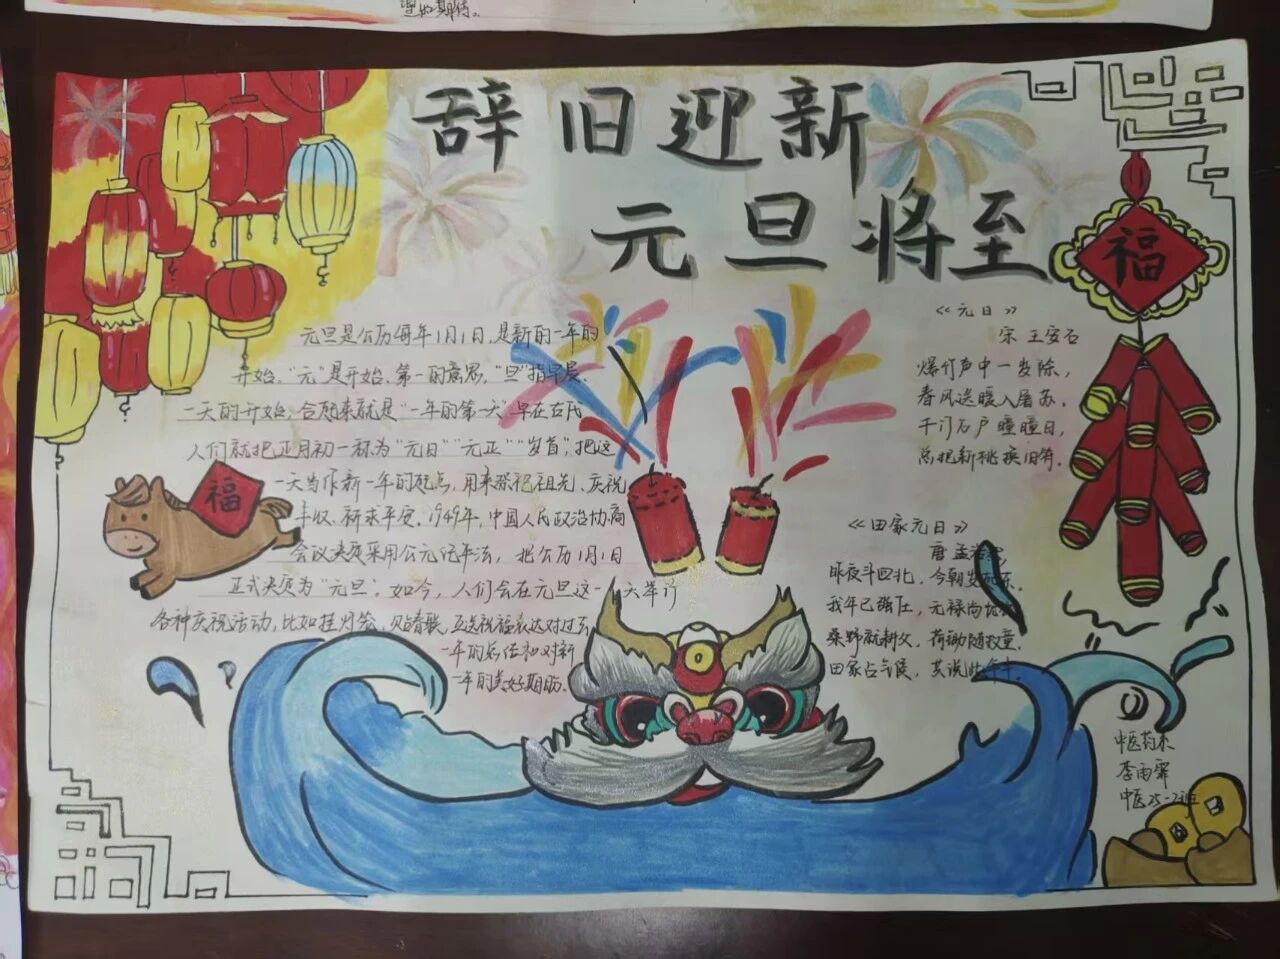 望的期待。
辞旧迎新
元旦将至
福
元旦是公历每年1月1日,是新的一年的
开始。“元”是开始、第一的意思,“旦”指早晨、
一天的开始,合起来就是“一年的第一天”早在古代
人们就把正月初一称为“元日”“元正”“岁首”,把这
一天当作新一年的起点,用来祭祀祖先、庆祝
丰收、祈求平安。1949年,中国人民政治协商
会议决定采用公元纪年法,把公历1月1日
正式决定为“元旦”。如今,人们会在元旦这一天举行
各种庆祝活动,比如挂灯笼,贴春联,互送祝福表达对过去
一年的总结和对新
一年的美好期盼。
福
《元日》
宋 王安石
爆竹声中一岁除,
春风送暖入屠苏。
千门万户瞳瞳日,
总把新桃换旧符。
《田家元日》
唐 孟浩
昨夜斗回北,今朝岁东。
我年已强仕,无禄尚
桑野就耕父,荷锄随牧童。
田家占气候,共说此年
中医药系
李雨霏
中医25-2班